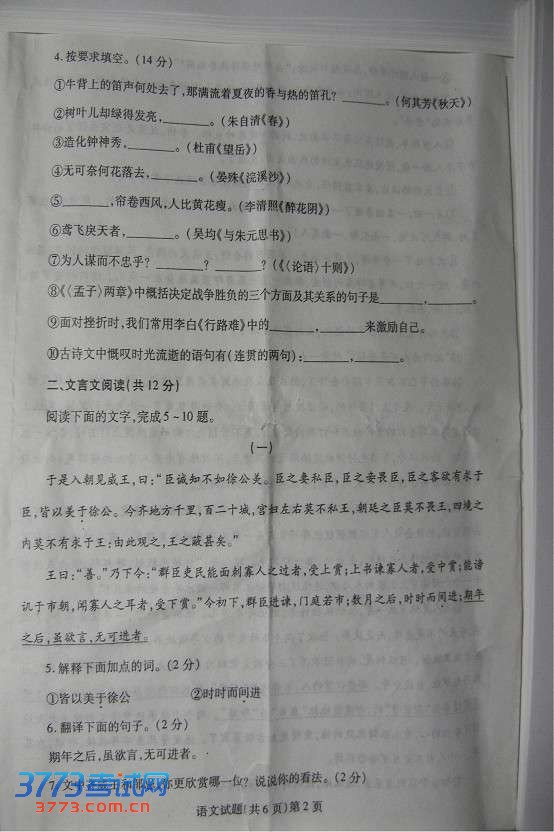 4.按要求填空。(14分)
①牛背上的笛声何处去了,那满流着夏夜的香与热的笛孔?______。(何其芳《秋天》)
②树叶儿却绿得发亮,______。(朱自清《春》)
③造化钟神秀,______。(杜甫《望岳》)
④无可奈何花落去,______。(晏殊《浣溪沙》)
⑤______,帘卷西风,人比黄花瘦。(李清照《醉花阴》)
⑥鸢飞戾天者,______。(吴均《与朱元思书》)
⑦为人谋而不忠乎?______?______?(《〈论语〉十则》)
⑧《〈孟子〉两章》中概括决定战争胜负的三个方面及其关系的句子是______,______。
⑨面对挫折时,我们常用李白《行路难》中的______,______来激励自己。
⑩古诗文中慨叹时光流逝的语句有(连贯的两句):______,______。
二、文言文阅读(共12分)
阅读下面的文字,完成5~10题。
(一)
于是入朝见威王,曰:“臣诚知不如徐公美。臣之妻私臣,臣之妾畏臣,臣之客欲有求于
臣,皆以美于徐公。今齐地方千里,百二十城,宫妇左右莫不私王,朝廷之臣莫不畏王,四境之
内莫不有求于王:由此观之,王之蔽甚矣。”
王曰:“善。”乃下令:“群臣吏民能面刺寡人之过者,受上赏;上书谏寡人者,受中赏;能谤
讥于市朝,闻寡人之耳者,受下赏。”令初下,群臣进谏,门庭若市;数月之后,时时而间进;期年
之后,虽欲言,无可进者。
5.解释下面加点的词。(2分)
①皆以美于徐公 ②时时而间进
6.翻译下面的句子。(2分)
期年之后,虽欲言,无可进者。
7.文中齐威王和邹忌,你更欣赏哪一位?说说你的看法。(2分)
语文试题(共6页)第2页
3773考试网
3773.com.cn